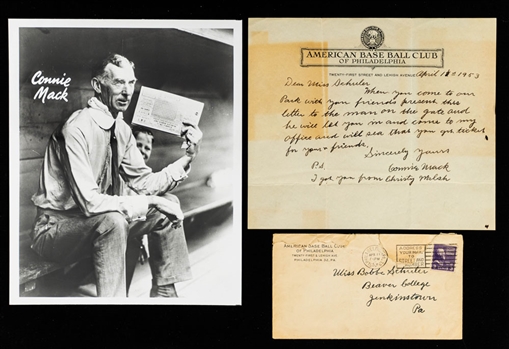 Connie
Mack
AMERICAN BASE BALL CLUB
OF PHILADELPHIA
TWENTY-FIRST STREET AND LEHIGH AVENUE
April 1953
Dear Miss Schuler
When you come to our
Park with you friends present this
letter to the man on the gate and
he will let you in and come to my
office and will sea that you get ticket
for you + friends.
Sincerely yours
Connie Mack
P.S.
I got you from Christy Walsh
AMERICAN BASE BALL CLUB
OF PHILADELPHIA
TWENTY-FIRST & LEHIGH AVE
PHILADELPHIA, PA.
Miss Bobbe Schuler
Beaver College
Jenkinstown
Pa